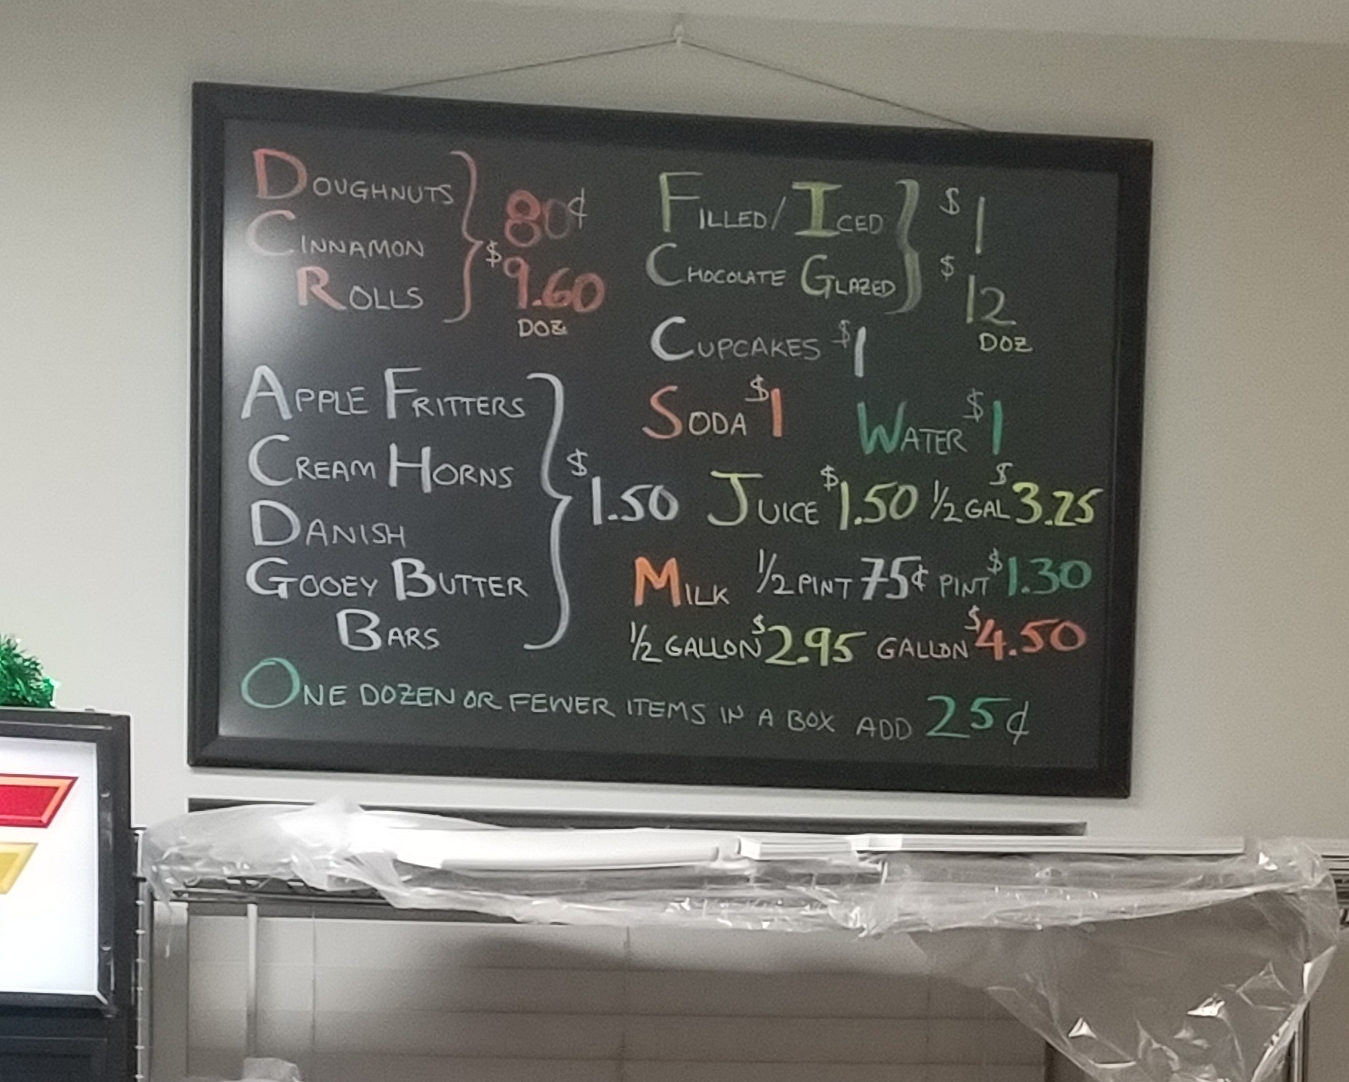 DOUGHNUTS
CINNAMON
ROLLS
80¢
$9.60
DOZ
APPLE FRITTERS
CREAM HORNS
DANISH
GOOEY BUTTER
BARS
$1.50
FILLED/ICED
CHOCOLATE GLAZED
$1
$12
DOZ
CUPCAKES $1
SODA $1 WATER $1
JUICE $1.50 1/2 GAL $3.25
MILK 1/2 PINT 75¢ PINT $1.30
1/2 GALLON $2.95 GALLON $4.50
ONE DOZEN OR FEWER ITEMS IN A BOX ADD 25¢